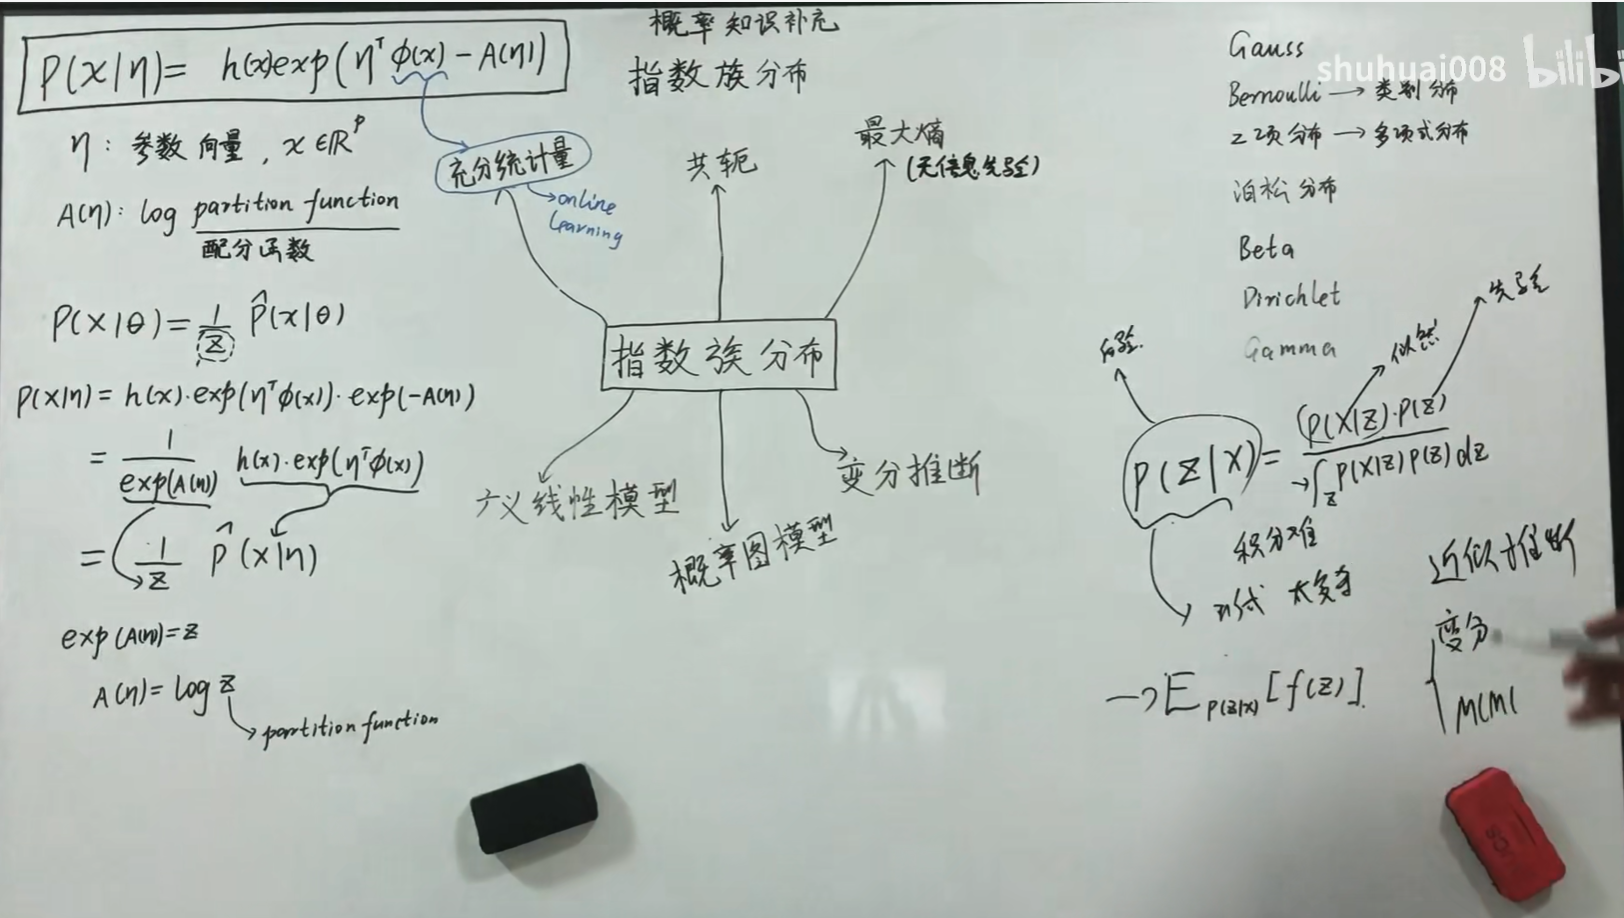 概率知识补充
指数族分布
P(x|η)= h(x)exp(ηᵀφ(x)-A(η))
η: 参数向量, x∈ℝᵖ
A(η): log partition function
配分函数
P(x|θ)=1/z P̂(x|θ)
P(x|η)=h(x)·exp(ηᵀφ(x))·exp(-A(η))
=1/exp(A(η)) h(x)·exp(ηᵀφ(x))
=1/z P̂(x|η)
exp(A(η))=z
A(η)=log z
partition function
充分统计量
online
learning
共轭
最大熵
(无信息先验)
指数族分布
广义线性模型
概率图模型
变分推断
Gauss
Bernoulli→类别分布
二项分布→多项式分布
泊松分布
Beta
Dirichlet
Gamma
后验
似然
先验
P(z|x)=P(x|z)·P(z)/∫_z P(x|z)P(z)dz
积分难
形式太复杂
→E_{P(z|x)}[f(z)]
近似推断
变分
MCMC
shuhuai008 bilibi